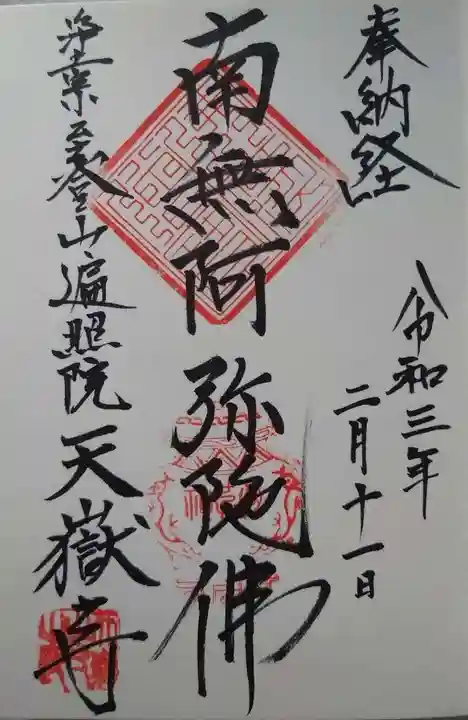 奉納経
令和三年
二月十一日
南無阿弥陀佛
浄業至登山遍照院天嶽寺